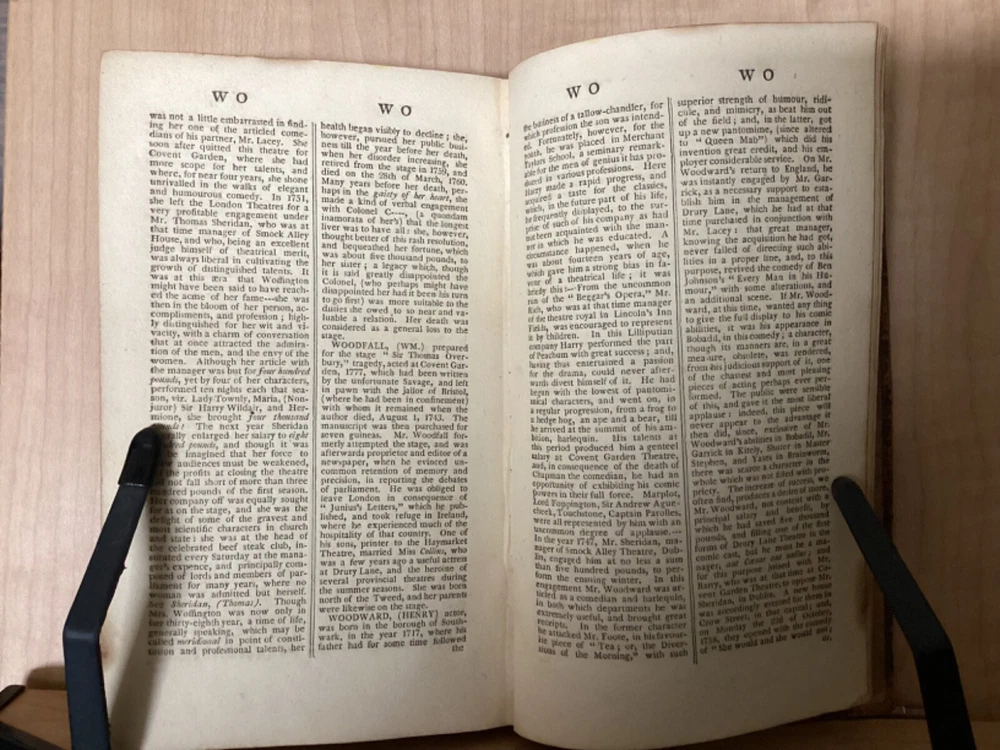 W O
was not a little embarrassed in find-
ing her one of the articled come-
dians of his partner, Mr. Lacey. She
soon after quitted this theatre for
Covent Garden, where she had
more scope for her talents, and
where, for near four years, she shone
unrivalled in the walks of elegant
and humourous comedy. In 1751,
she left the London Theatres for a
very profitable engagement under
Mr. Thomas Sheridan, who was at
that time manager of Smock Alley
House, and who, being an excellent
judge himself of theatrical merit,
was always liberal in cultivating the
growth of distinguished talents. It
was at this æra that Woffington
might have been said to have reach-
ed the acme of her fame---she was
then in the bloom of her person, ac-
compliments, and profession; high-
ly distinguished for her wit and vi-
vacity, with a charm of conversation
that at once attracted the admira-
tion of the men, and the envy of the
women. Although her article with
the manager was but for four hundred
pounds, yet by four of her characters,
performed ten nights each that sea-
son, viz. Lady Townly, Maria, (Non-
juror) Sir Harry Wildair, and Her-
mione, she brought four thousand
The next year Sheridan
enlarged her salary to eight
pounds, and though it was
be imagined that her force to
audiences must be weakened,
the profits at closing the theatre
not fall short of more than three
hundred pounds of the first season.
Her company off was equally sought
for as on the stage, and she was the
delight of some of the gravest and
most scientific characters in church
and state: she was at the head of
the celebrated beef steak club, in-
stituted every Saturday at the mana-
ger's expence, and principally com-
posed of lords and members of par-
liament for many years, where no
woman was admitted but herself.
See Sheridan, (Thomas). Though
Mrs. Woffington was now only in
her thirty-eighth year, a time of life,
generally speaking, which may be
called meridional in point of consti-
tution and professional talents, her
W O
health began visibly to decline; she,
however, pursued her public busi-
ness till the year before her death,
when her disorder increasing, she
retired from the stage in 1759, and
died on the 28th of March, 1760.
Many years before her death, per-
haps in the gaiety of her heart, she
made a kind of verbal engagement
with Colonel C---, (a quondam
inamorata of her's) that the longest
liver was to have all: she, however,
thought better of this rash resolution,
and bequeathed her fortune, which
was about five thousand pounds, to
her sister; a legacy which, though
it is said greatly disappointed the
Colonel, (who perhaps might have
disappointed her had it been his turn
to go first) was more suitable to the
duties she owed to so near and va-
luable a relation. Her death was
considered as a general loss to the
stage.
WOODFALL, (WM.) prepared
for the stage "Sir Thomas Over-
bury," tragedy, acted at Covent Gar-
den, 1777, which had been written
by the unfortunate Savage, and left
in pawn with the jailor of Bristol,
(where he had been in confinement)
with whom it remained when the
author died, August 1, 1743. The
manuscript was then purchased for
seven guineas. Mr. Woodfall for-
merly attempted the stage, and was
afterwards proprietor and editor of a
newspaper, when he evinced un-
common retention of memory and
precision, in reporting the debates
of parliament. He was obliged to
leave London in consequence of
"Junius's Letters," which he pub-
lished, and took refuge in Ireland,
where he experienced much of the
hospitality of that country. One of
his sons, printer to the Haymarket
Theatre, married Miss Collins, who
was a few years ago a useful actress
at Drury Lane, and the heroine of
several provincial theatres during
the summer seasons. She was born
north of the Tweed, and her parents
were likewise on the stage.
WOODWARD, (HENRY) actor,
was born in the borough of South-
wark, in the year 1717, where his
father had for some time followed
the
W O
the business of a tallow-chandler, for
which profession the son was intend-
ed. Fortunately, however, for the
youth, he was placed in Merchant
Taylors School, a seminary remark-
able for the men of genius it has pro-
duced in various professions. Here
Harry made a rapid progress, and
acquired a taste for the classics,
which, in the future part of his life,
he frequently displayed, to the sur-
prise of such of his company as had
not been acquainted with the man-
ner in which he was educated. A
circumstance happened, when he
was about fourteen years of age,
which gave him a strong bias in fa-
vour of a theatrical life; it was
briefly this:--From the uncommon
run of the "Beggar's Opera," Mr.
Rich, who was at that time manager
of the theatre royal in Lincoln's Inn
Fields, was encouraged to represent
it by children. In this Lilliputian
company Harry performed the part
of Peachum with great success; and,
having thus entertained a passion
for the drama, could never after-
wards divest himself of it. He had
began with the lowest of pantomi-
mical characters, and went on, in
a regular progression, from a frog to
a hedge hog, an ape and a bear, till
he arrived at the summit of his am-
bition, harlequin. His talents at
this period produced him a genteel
salary at Covent Garden Theatre,
and, in consequence of the death of
Chapman the comedian, he had an
opportunity of exhibiting his comic
powers in their full force. Marplot,
Lord Foppington, Sir Andrew Ague-
cheek, Touchstone, Captain Parolles,
were all represented by him with an
uncommon degree of applause.
In the year 1747, Mr. Sheridan, ma-
nager of Smock Alley Theatre, Dub-
lin, engaged him at no less a sum
than five hundred pounds, to per-
form the ensuing winter. In this
engagement Mr. Woodward was ar-
ticled as comedian and harlequin,
in both which departments he was
extremely useful, and brought great
receipts. In the former character
he attacked Mr. Foote, in his favour-
ite piece of "Tea; or, the Diver-
sions of the Morning," with such
W O
superior strength of humour, ridi-
cule, and mimicry, as beat him out
of the field; and, in the latter, got
up a new pantomime, (since altered
to "Queen Mab") which did his
invention great credit, and his em-
ployer considerable service. On Mr.
Woodward's return to England, he
was instantly engaged by Mr. Gar-
rick, as a necessary support to esta-
blish him in the management of
Drury Lane, which he had at that
time purchased in conjunction with
Mr. Lacey: that great manager,
knowing the acquisition he had got,
never failed of directing such abi-
lities in a proper line, and, to this
purpose, revived the comedy of Ben
Johnson's "Every Man in his Hu-
mour," with some alterations, and
an additional scene. If Mr. Wood-
ward, at this time, wanted any thing
to give the full display to his comic
abilities, it was his appearance in
Bobadil, in this comedy; a character,
though its manners are, in a great
measure, obsolete, was rendered,
from his judicious support of it, one
of the chastest and most pleasing
pieces of acting perhaps ever per-
formed. The public were sensible
of this, and gave it the most liberal
applause: indeed, this piece will
never appear to the advantage it
then did, since, exclusive of Mr.
Woodward's abilities in Bobadil, Mr.
Garrick in Kitely, Shuter in Master
Stephen, and Yates in Brainworm,
there was scarce a character in the
whole which was not filled with pro-
priety. The increase of success, we
often find, produces a desire of more.
Mr. Woodward, not content with a
principal salary and benefit, by
which he had saved five thousand
pounds, and filling one of the first
forms of Drury Lane Theatre in the
comic cast, but he must be a ma-
nager, aut Cæsar aut nullus; and
for this purpose joined with Mr.
Barry, who was at that time at Co-
vent Garden Theatre, to oppose Mr.
Sheridan, in Dublin. A new house
was accordingly erected for them in
Crow Street, in that capital; and,
on Monday the 23d of October,
1758, they opened with the comedy
of "She would and she would not;